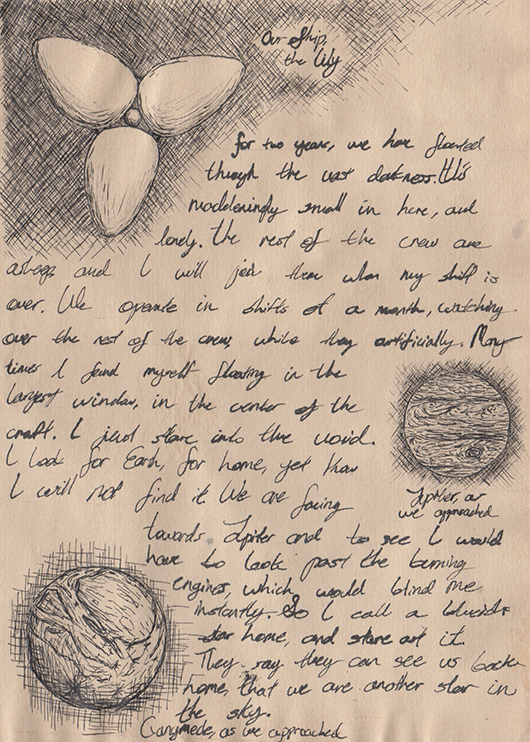 Our Ship,
the Lily
for two years, we have floated
through the vast darkness. It's
maddeningly small in here, and
lonely. The rest of the crew are
asleep and I will join them when my shift is
over. We operate in shifts of a month, watching
over the rest of the crew, while they artificially. Many
times I found myself floating in the
largest window, in the center of the
craft. I just stare into the void.
I look for Earth, for home, yet know
I will not find it. We are facing
towards Jupiter and to see I would
have to look past the burning
engines, which would blind me
instantly. So I call a blueish
star home, and stare at it.
They say they can see us back
home, that we are another star in
the sky.
Jupiter, as
we approached
Ganymede, as we approached